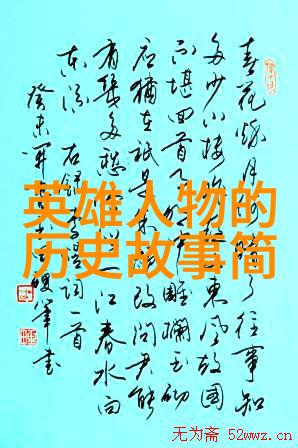 英雄人物的
历史故事简
春花秋月了往事知
多少小楼昨東风故国
不堪回首雕欄玉砌
应犹在祇是改问君能
有几多愁一江春水向
东流 右録词一首
癸未书
无为斋 52wwz.cn